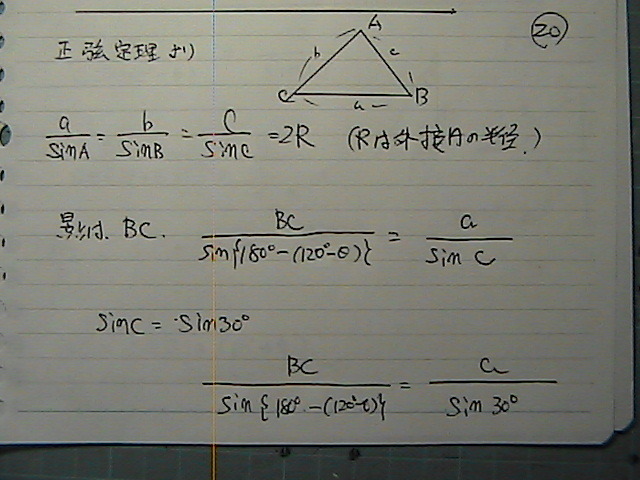 20
正弦定理より
A
b
c
C
a
B
a/sinA = b/sinB = C/sinC = 2R (Rは外接円の半径.)
影は、BC.
BC/sin{180°-(120°-θ)} = a/sin C
sinC = sin30°
BC/sin{180°-(120°-θ)} = a/sin 30°